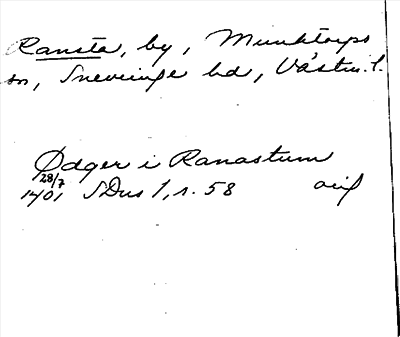 Ransta, by, Munktorps
sn, Snevringe hd, Västm.l.
Ødger i Ranastum
28/7
1401 SDns 1, s. 58 orig